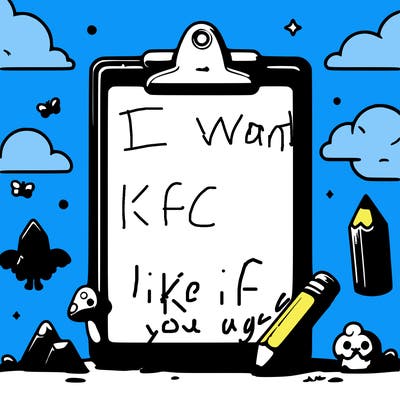 I Want
KFC
like if
you agre